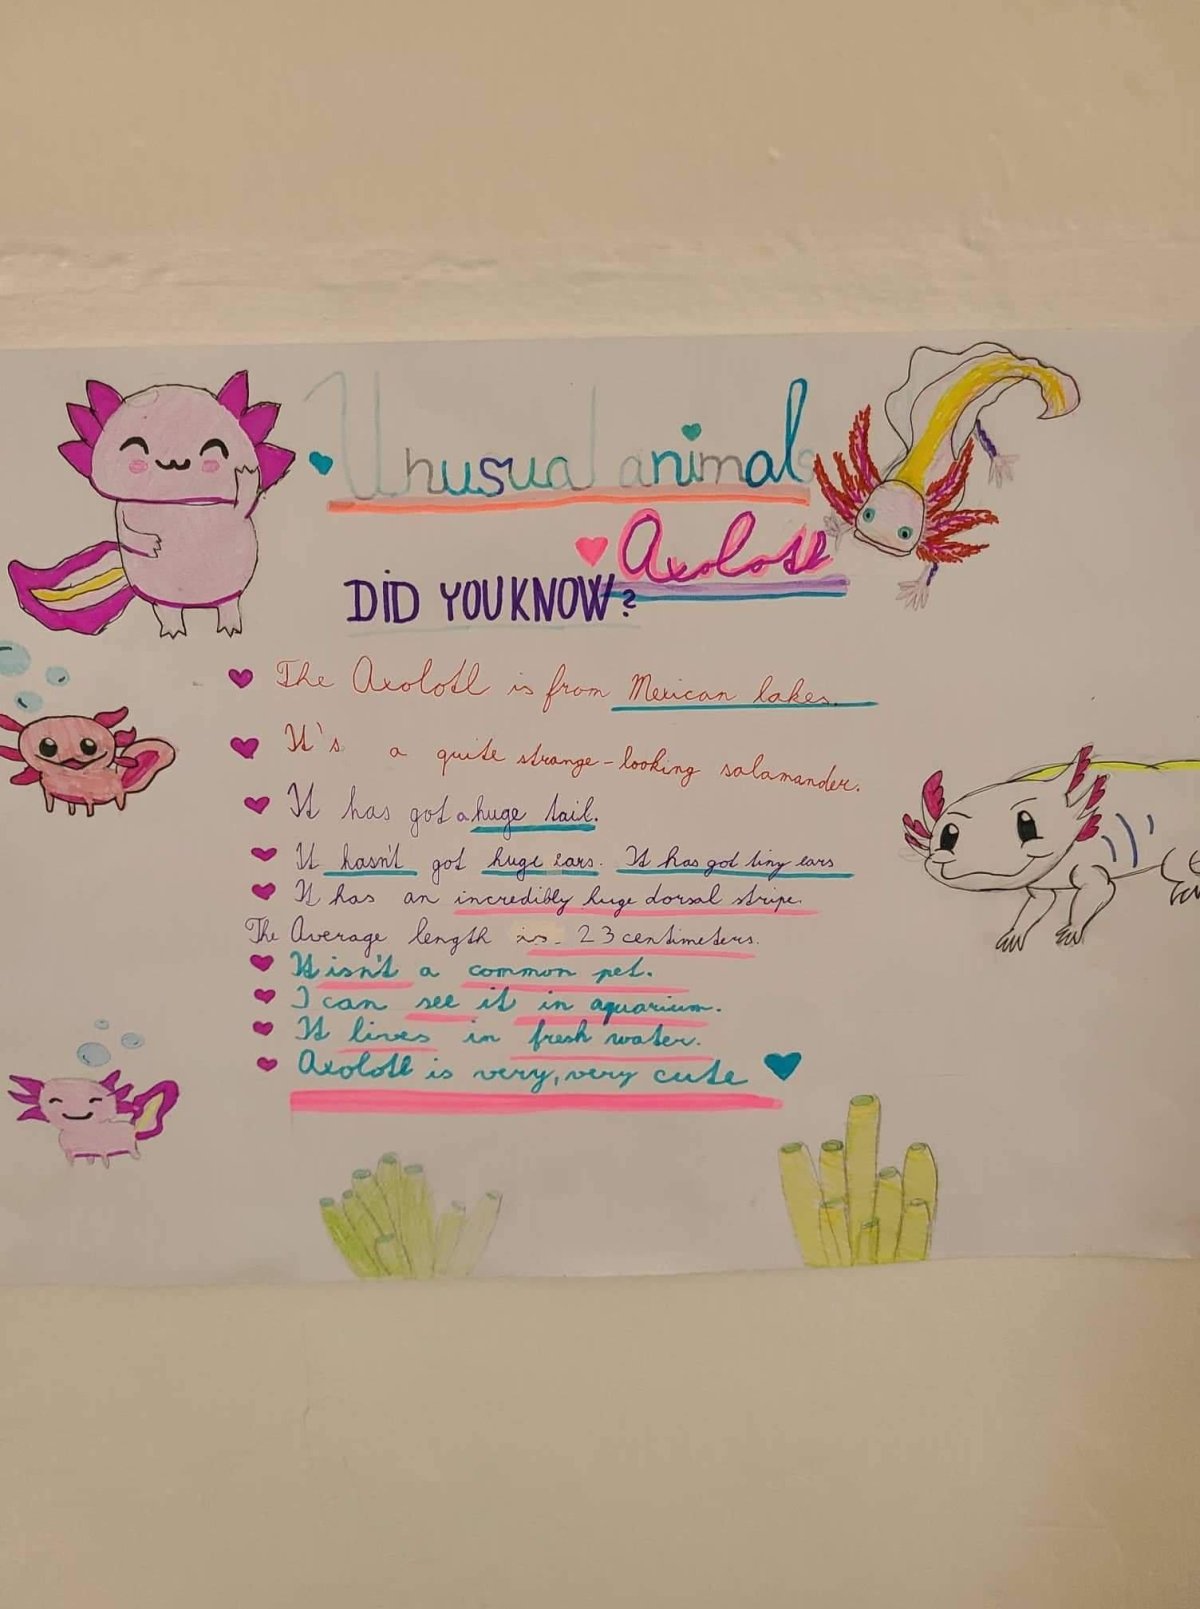 Unusual animals
Axolotl
DID YOU KNOW?
The Axolotl is from Mexican lakes.
It's a quite strange-looking salamander.
It has got a huge tail.
It hasn't got huge ears. It has got tiny ears
It has an incredibly huge dorsal stripe.
The Average length is 23 centimeters.
It isn't a common pet.
I can see it in aquarium.
It lives in fresh water.
Axolotl is very, very cute